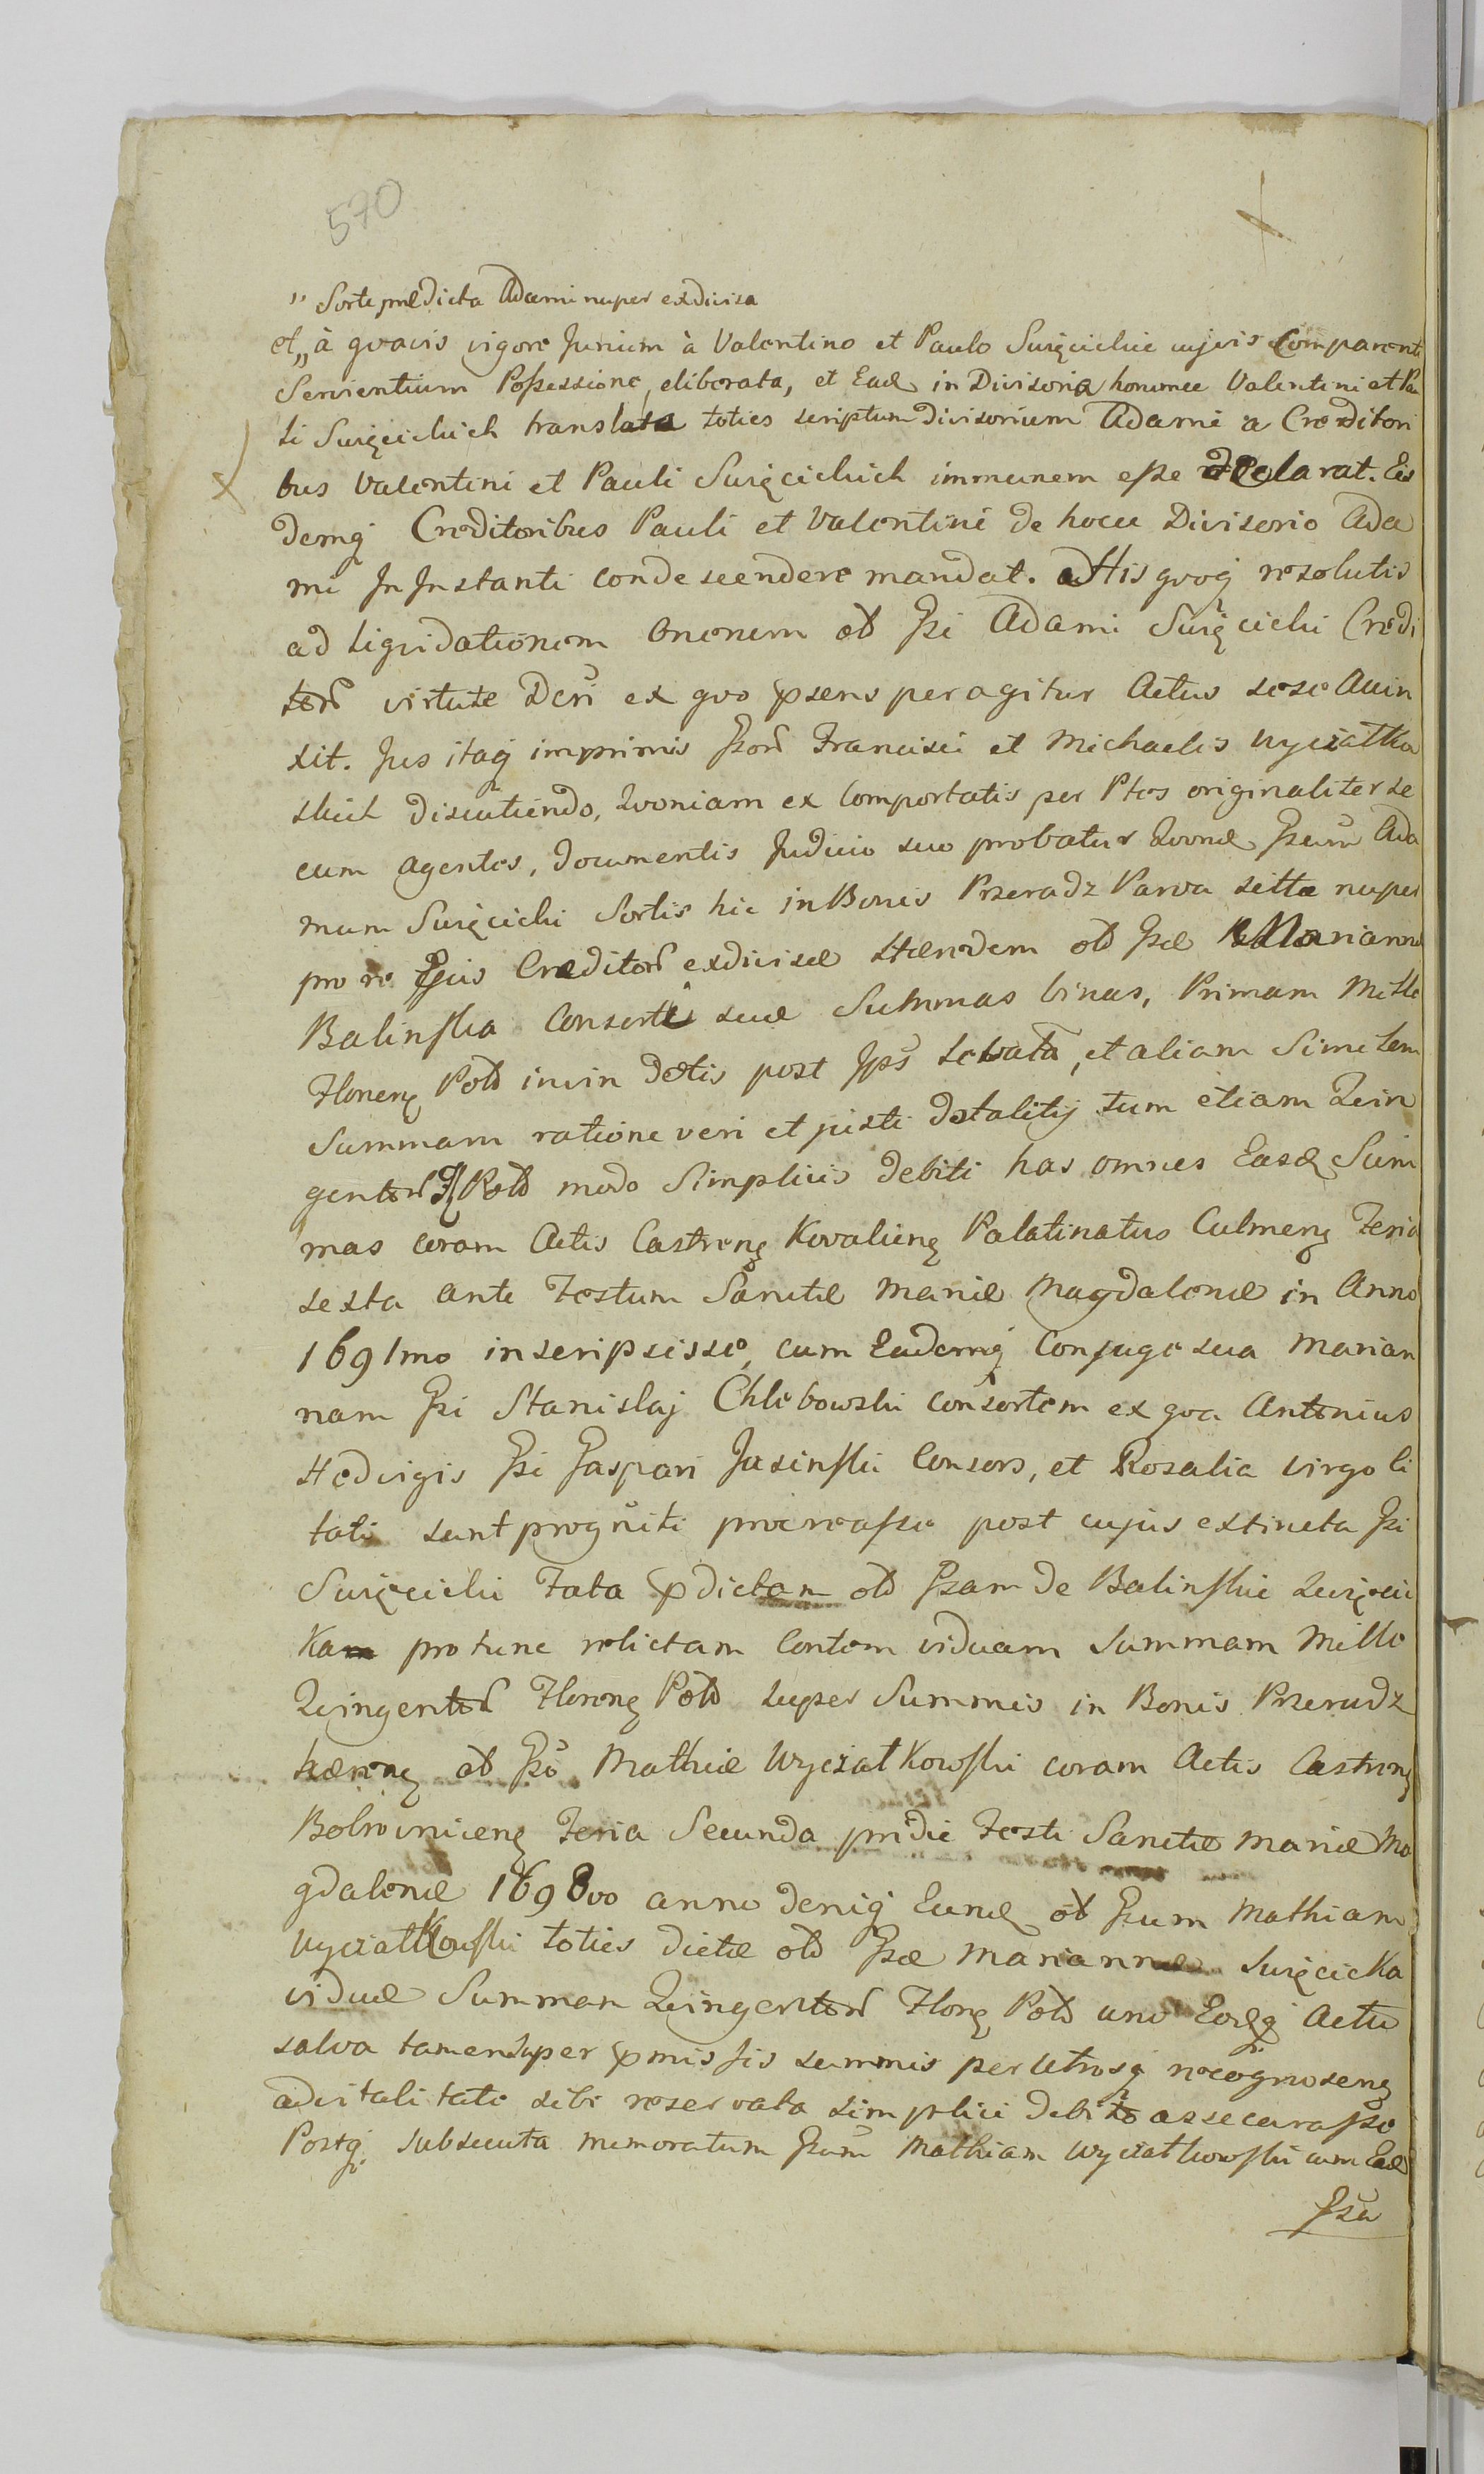 570
" Sorte prædicta Adami nuper exdivisa
et,, à qvavis vigore Jurium à Valentino et Paulo Surzcickie cujvis Comparenti
Servientium Possessione, eliberata, et Ead in Divisoria honunce Valentini et Pau
li Surzcickich translata toties scriptum divisorium Adami a Creditori
bus Valentini et Pauli Surzcickich immunem esse declarat. Eis
demq Creditoribus Pauli et Valentini de hocce Divisorio Ada
mi In Instanti condescendere mandat. His qvoq resolutis
ad liqvidationem Onerum olb Gsi Adami Surzcicki Credi
tor virtute Dcri ex qvo psens peragitur Actus sese Accin
xit. Jus itaq imprimis Gsor Francisci et Michaelis Wyciatkow
skich discutiendo, Qvoniam ex Comportatis per Ptos originaliter se
cum agentes, documentis Judicio suo probatur Qvond Gsum Ada
mum Surzcicki Sortis hic in Bonis Przeradz Parva sittæ nuper
pro re Ejus Creditor exdivisæ Hæredem olb Gsæ Marianna
Balinska Consorti suæ Summas binas, Primam Mille
Floreng Polo in vim dotis post Ips levata, et aliam Similem
Summam ratione veri et justi dotalitij tum etiam Qvin
gentor Fl Polo modo Simplicis debiti has omnes Easd Sum
mas coram Actis Castreng Kovalieng Palatinatus Culmeng Feria
sexta ante Festum Sanctæ Mariæ Magdalenæ in Anno
1691mo inscripsisse, cum Eademq Conjuge sua Marian
nam Gsi Stanislaj Chlebowski consortem ex qva Antonius
Hedvigis Gsi Gaspari Jasinski Consors, et Rosalia virgo li
tati sunt progniti procreasse post cujus extincta Gsi
Surzcicki Fata pdictam olb Gsam de Balinskie Surzcic
Kam pro tunc relictam Contem viduam Summam Mille
Qvingentor Floreng Polo super Summis in Bonis Przeradz
hæreng olb Gso Mathiæ Wyciatkowski coram Actis Castreng
Bobrowniceng Feria Secunda pridie Festi Sanctæ Mariæ Ma
gdalenæ 1698vo anno deniq Eund olb Gsum Mathiam
Wyciatkowski toties dictæ olb Gsæ Mariannæ Surzcicka
viduæ Summam Qvingentor Floreng Polo uno Eodq Actu
salva tamen super pmissis summis per Utrosq recognoseng
advitalitate sibi reservata simplici debito assecurasse
Postq subsecuta memoratum Gsum Mathiam Wyciatkowski cum Ead
Gsa